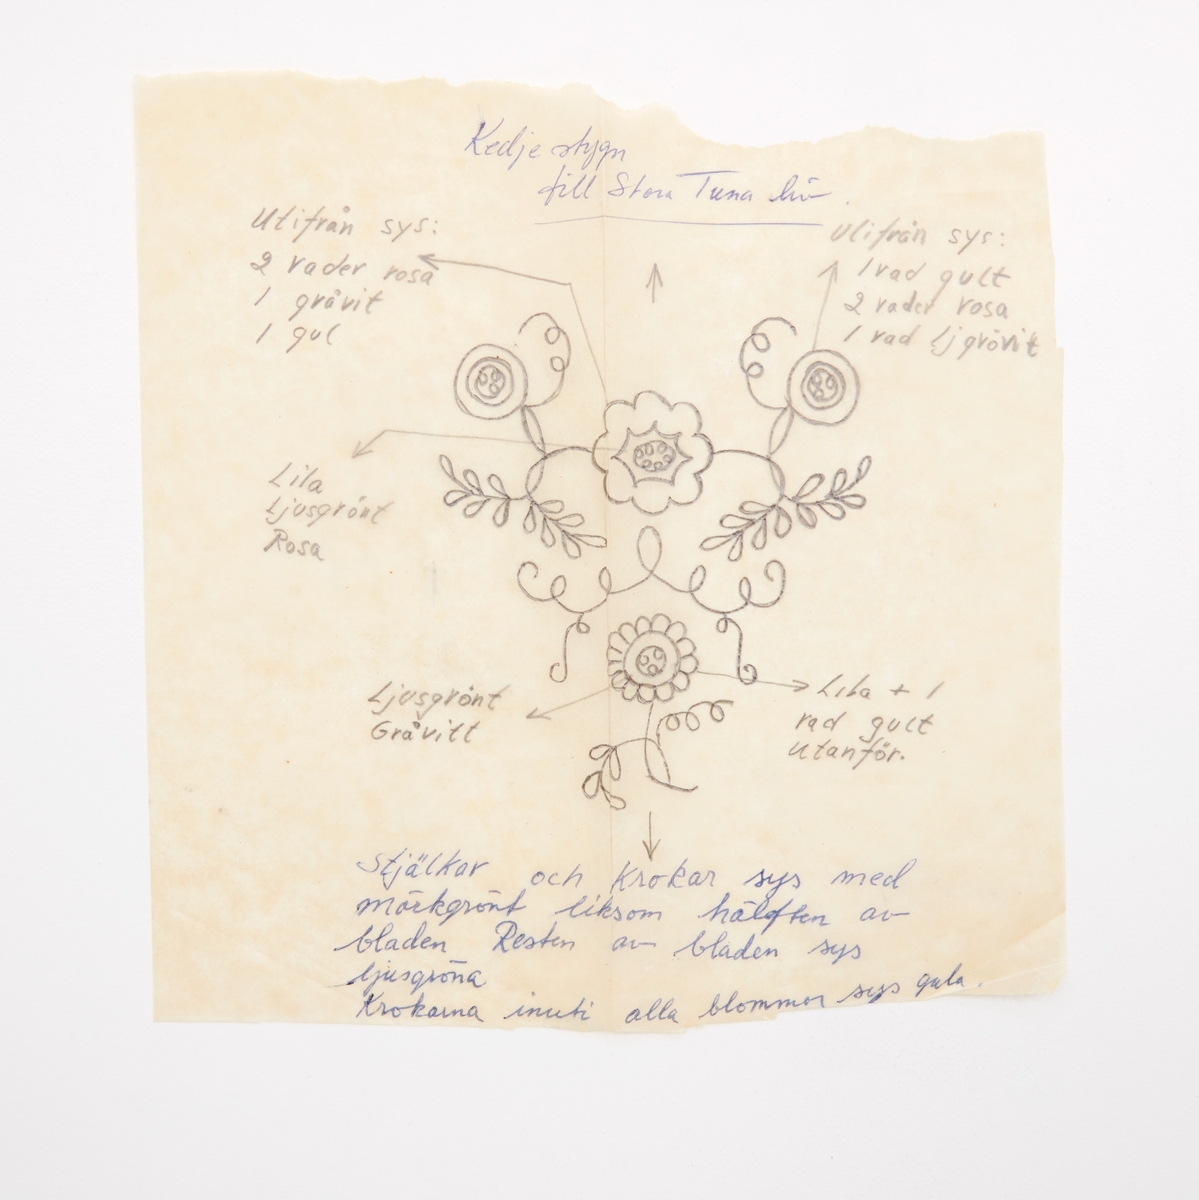 Kedjestygn
till Stora Tuna liv.
Utifrån sys:
2 rader rosa
1 gråvit
1 gul
Utifrån sys:
1 rad gult
2 rader rosa
1 rad Ljgråvit
Lila
Ljusgrönt
Rosa
Ljusgrönt
Gråvitt
Lila + 1
rad gult
utanför.
Stjälkar och Krokar sys med
mörkgrönt liksom hälften av
bladen Resten av bladen sys
ljusgröna
Krokarna inuti alla blommor sys gula.